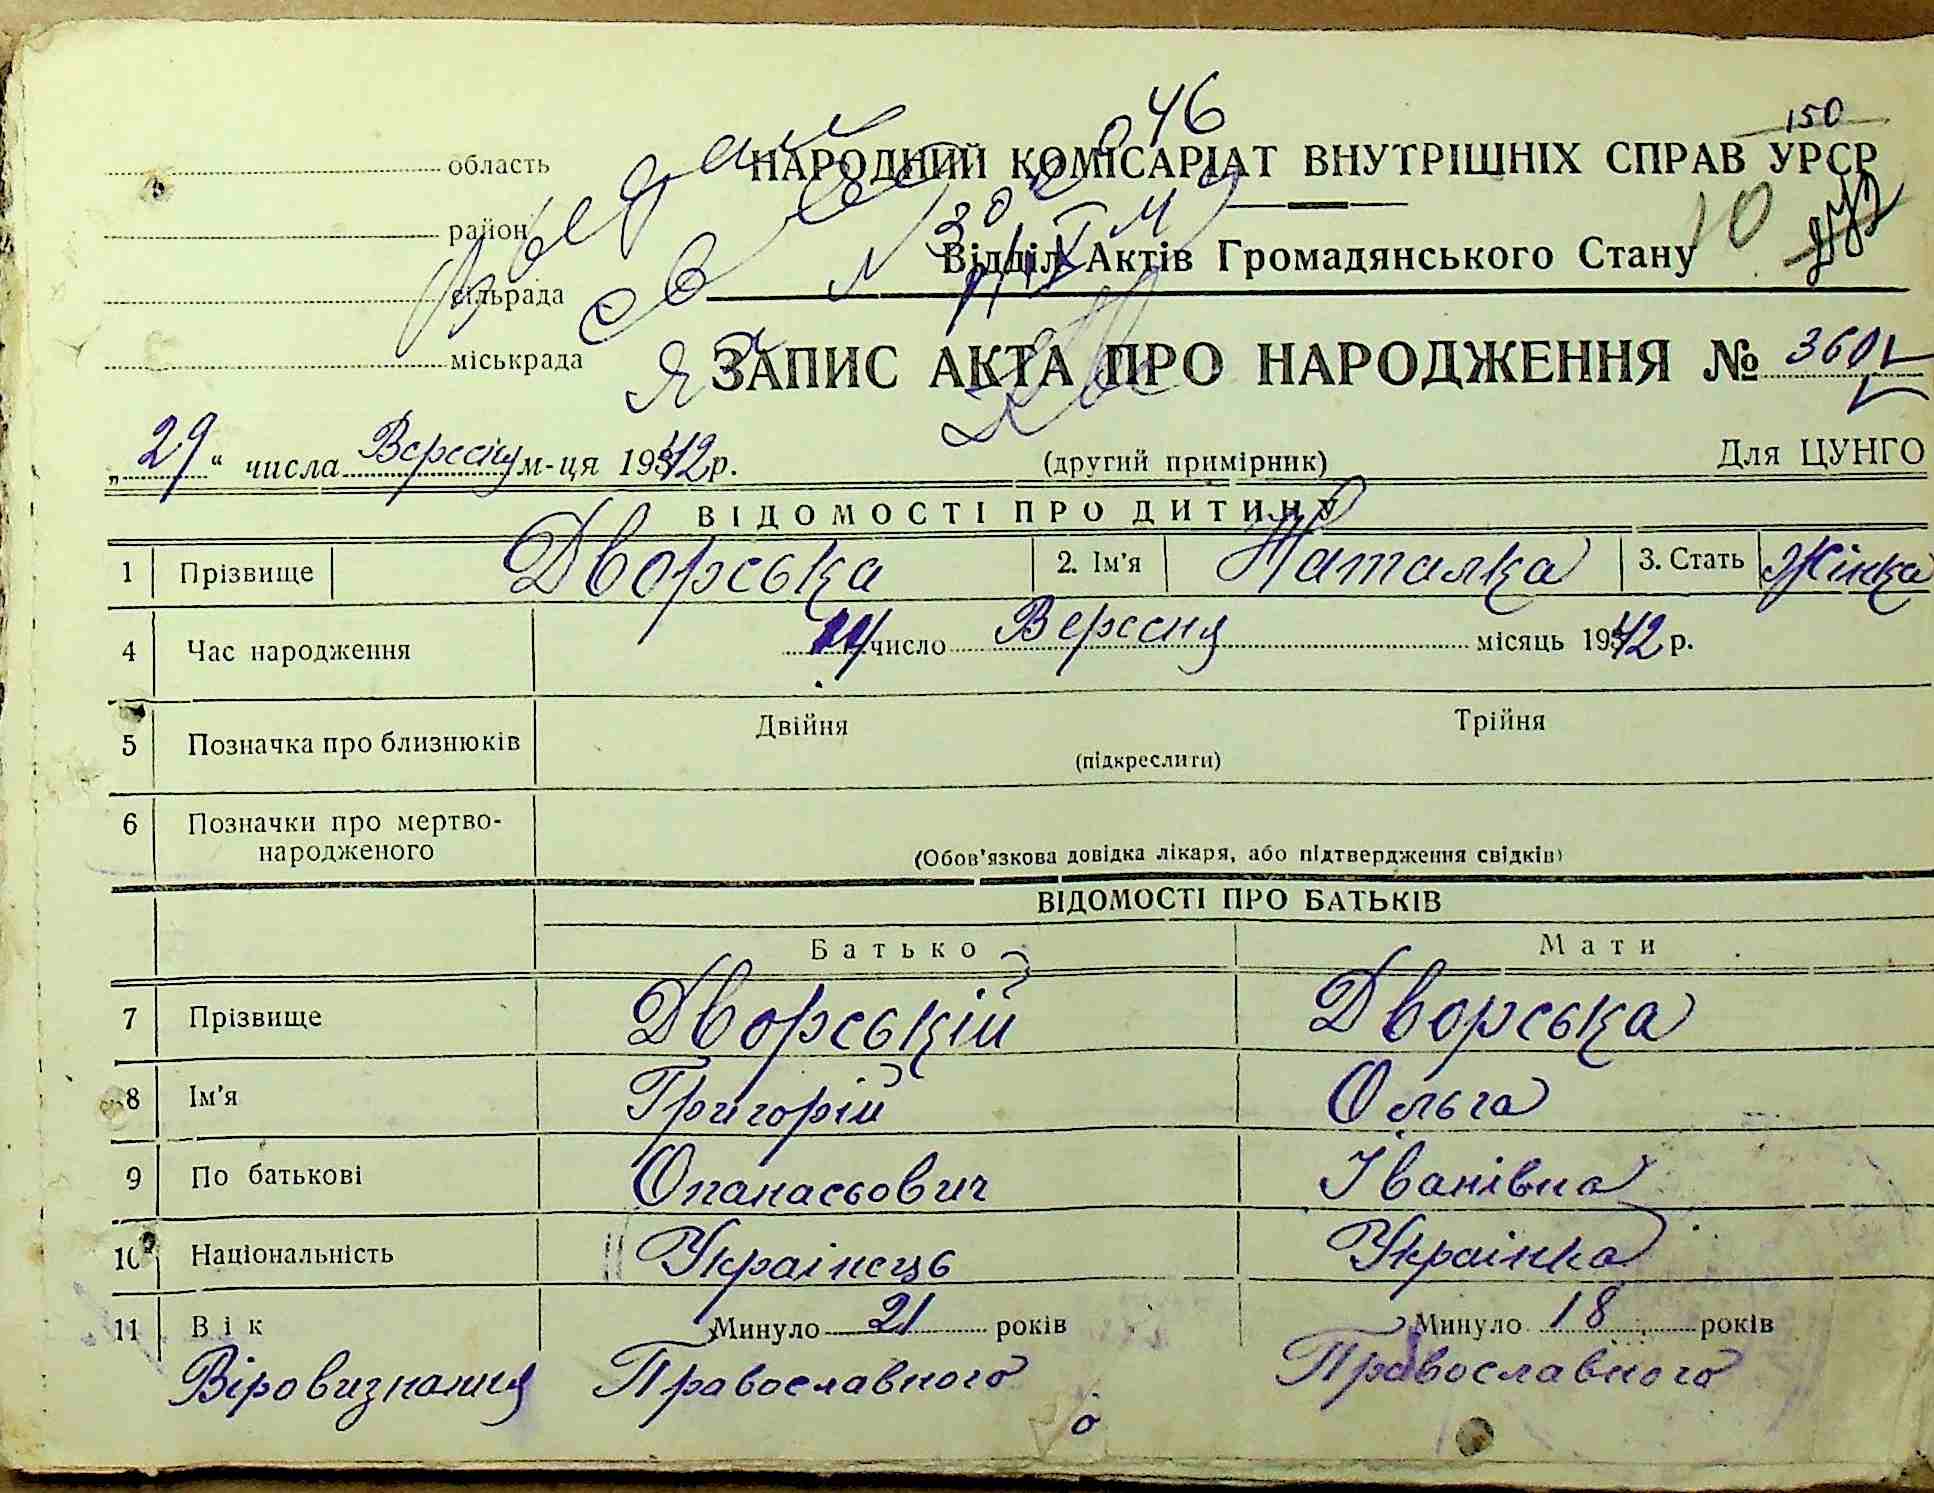 46
150
область
НАРОДНИЙ КОМІСАРІАТ ВНУТРІШНІХ СПРАВ УРСР
район
10
Відділ Актів Громадянського Стану
сільрада
міськрада
ЗАПИС АКТА ПРО НАРОДЖЕННЯ № 360
„29“ числа Вересня м-ця 1942 р.
(другий примірник)
Для ЦУНГО
ВІДОМОСТІ ПРО ДИТИНУ
1 Прізвище Дворська 2. Ім'я Наталка 3. Стать Жінка
4 Час народження число Вересня місяць 1942 р.
5 Позначка про близнюків Двійня Трійня
(підкреслити)
6 Позначки про мертво-
народженого
(Обов'язкова довідка лікаря, або підтвердження свідків)
ВІДОМОСТІ ПРО БАТЬКІВ
Батько Мати
7 Прізвище Дворській Дворська
8 Ім'я Григорій Ольга
9 По батькові Опанасьович Іванівна
10 Національність Украінець Украінка
11 Вік Минуло 21 років Минуло 18 років
Віровизнання Православного Православного